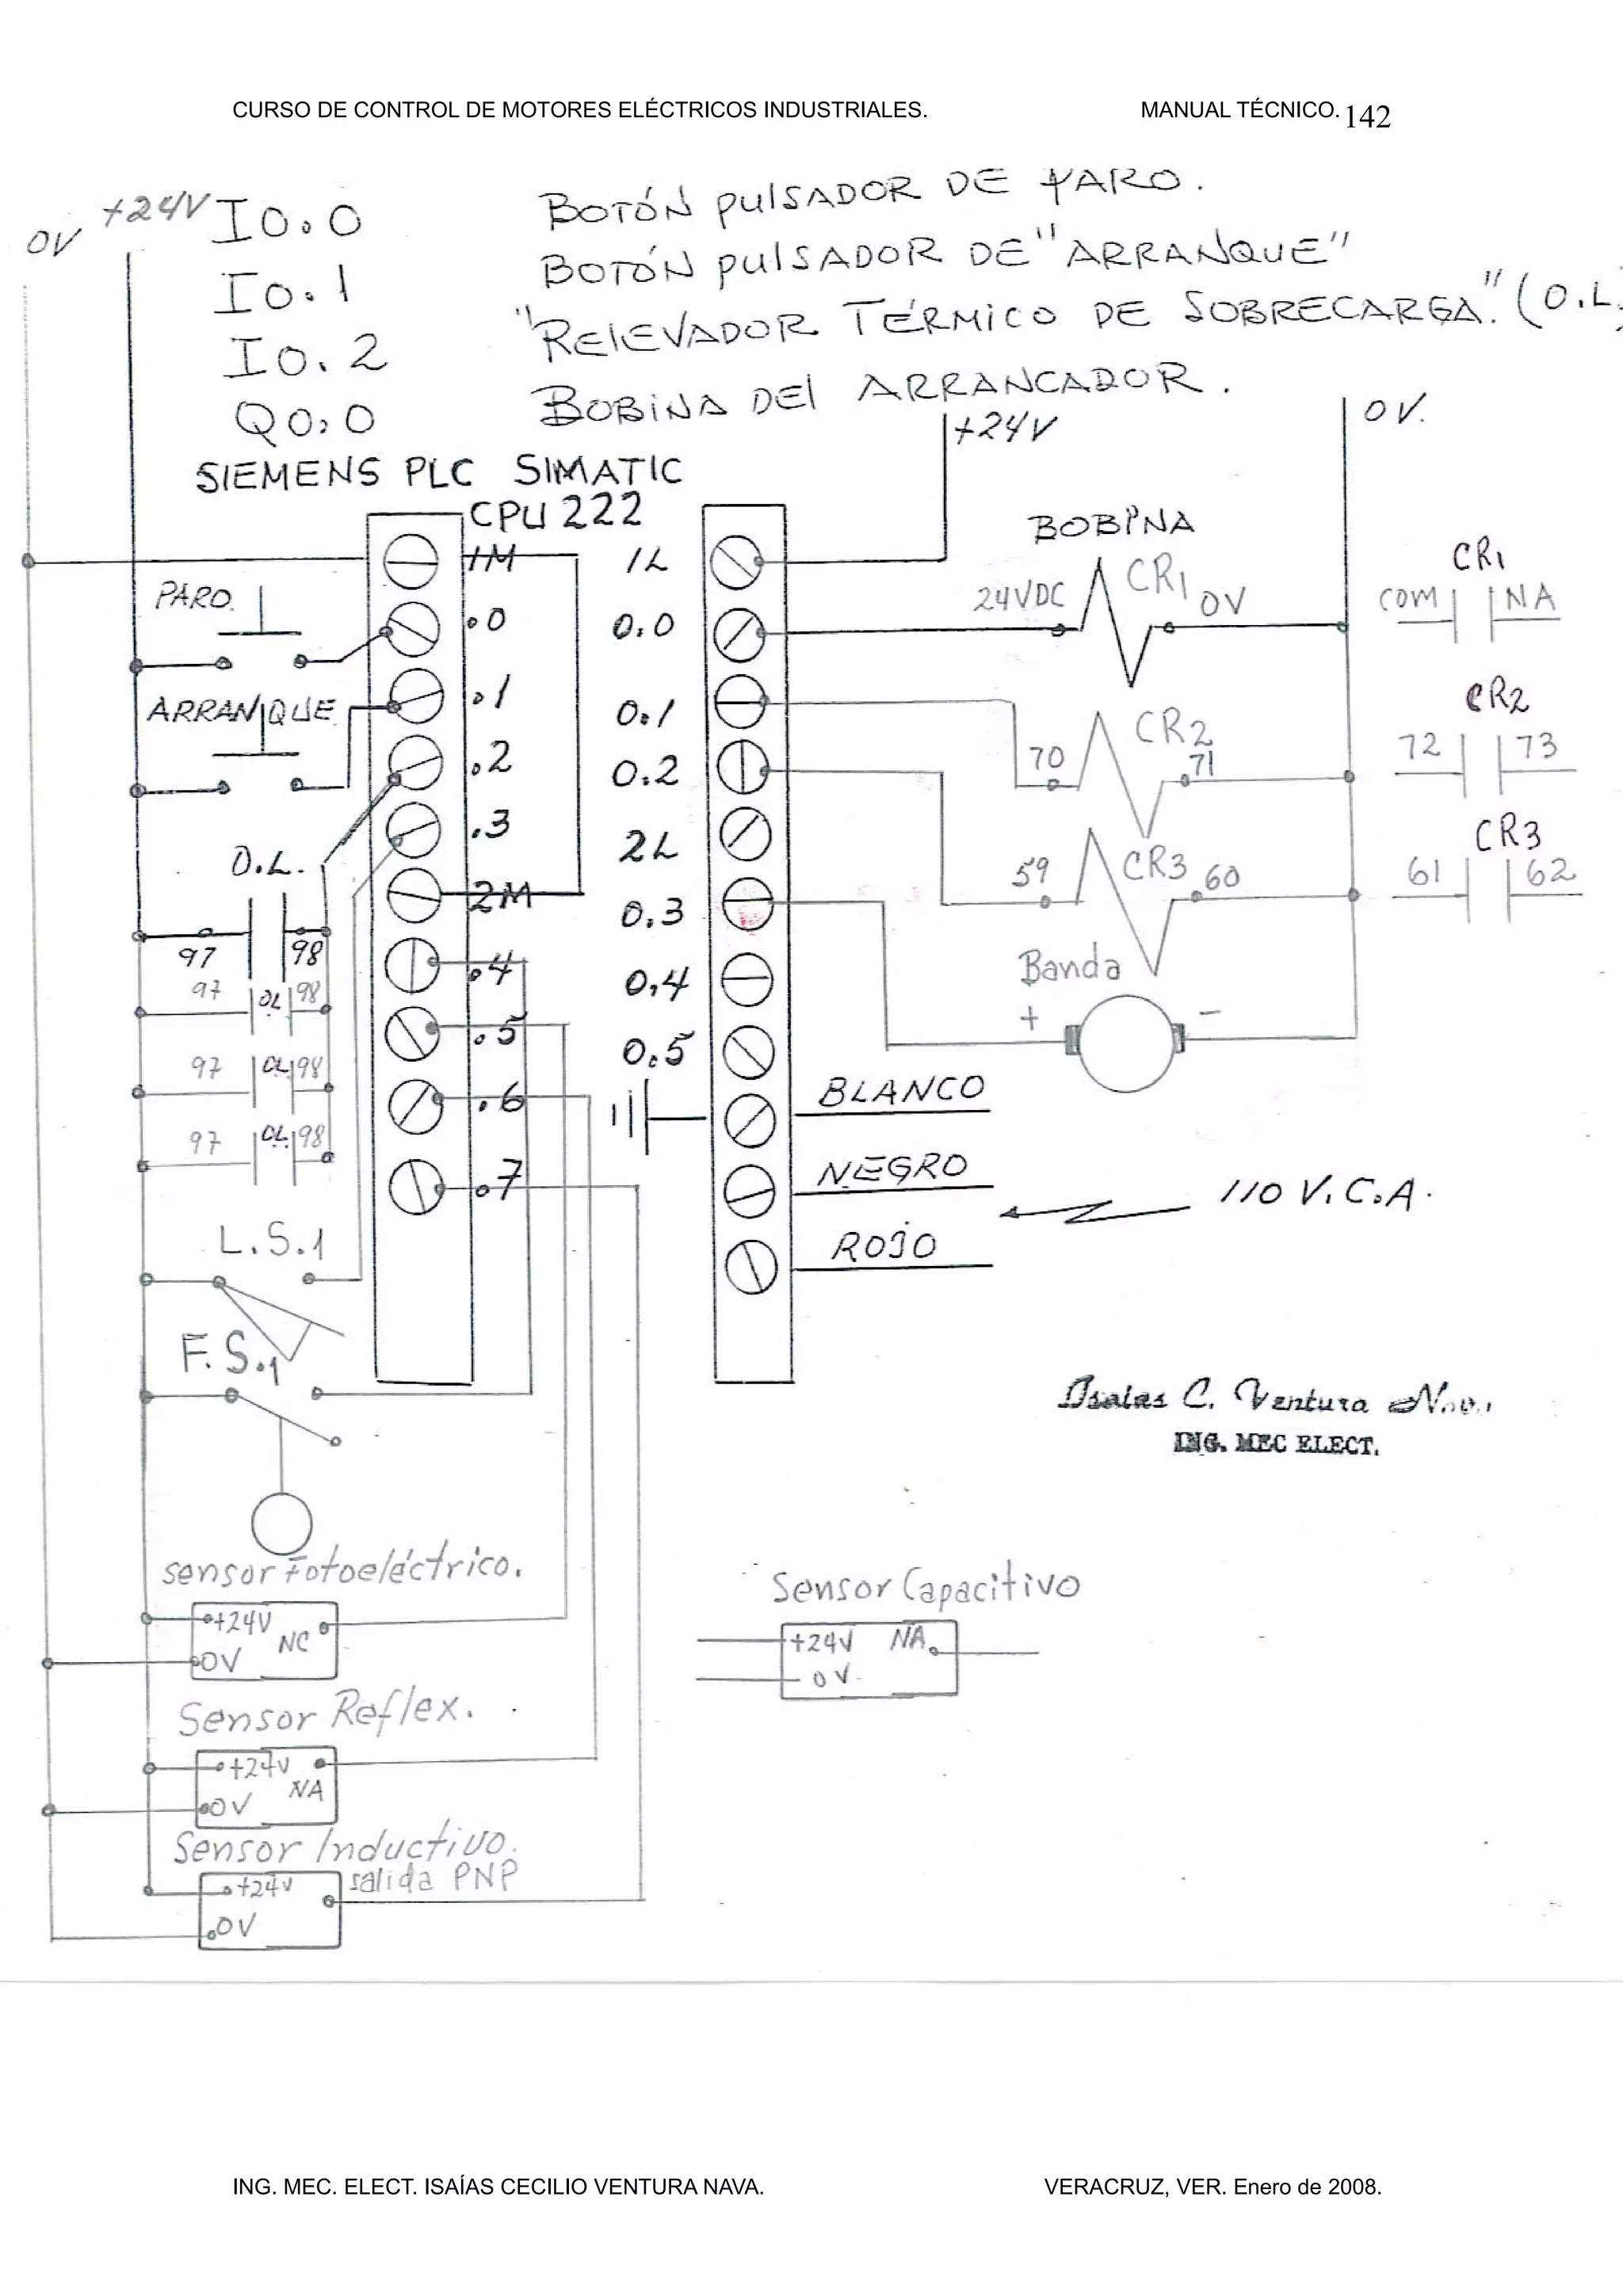 CURSO DE CONTROL DE MOTORES ELÉCTRICOS INDUSTRIALES. MANUAL TÉCNICO. 142
0V +24V I0.0 BOTÓN PULSADOR DE PARO.
I0.1 BOTÓN PULSADOR DE "ARRANQUE"
I0.2 "RELEVADOR TÉRMICO DE SOBRECARGA." (O.L.
Q0.0 BOBINA DEL ARRANCADOR.
SIEMENS PLC SIMATIC
CPU 222
+24V
0V.
1M
.0
.1
.2
.3
2M
.4
.5
.6
.7
1L
0.0
0.1
0.2
2L
0.3
0.4
0.5
PARO.
ARRANQUE
O.L.
97 98
97 OL 98
97 OL 98
97 OL 98
L.S.1
F.S.1
BOBINA
24VDC CR1 0V
70 CR2 71
59 CR3 60
Banda
+ -
CR1
COM NA
CR2
72 73
CR3
61 62
BLANCO
NEGRO
ROJO
110 V.C.A.
Isaías C. Ventura Nava
ING. MEC ELECT.
sensor Fotoeléctrico.
+24V NC
0V
Sensor Reflex.
+24V NA
0V
Sensor Inductivo.
salida PNP
+24V
0V
Sensor Capacitivo
+24V NA
0V
ING. MEC. ELECT. ISAÍAS CECILIO VENTURA NAVA. VERACRUZ, VER. Enero de 2008.